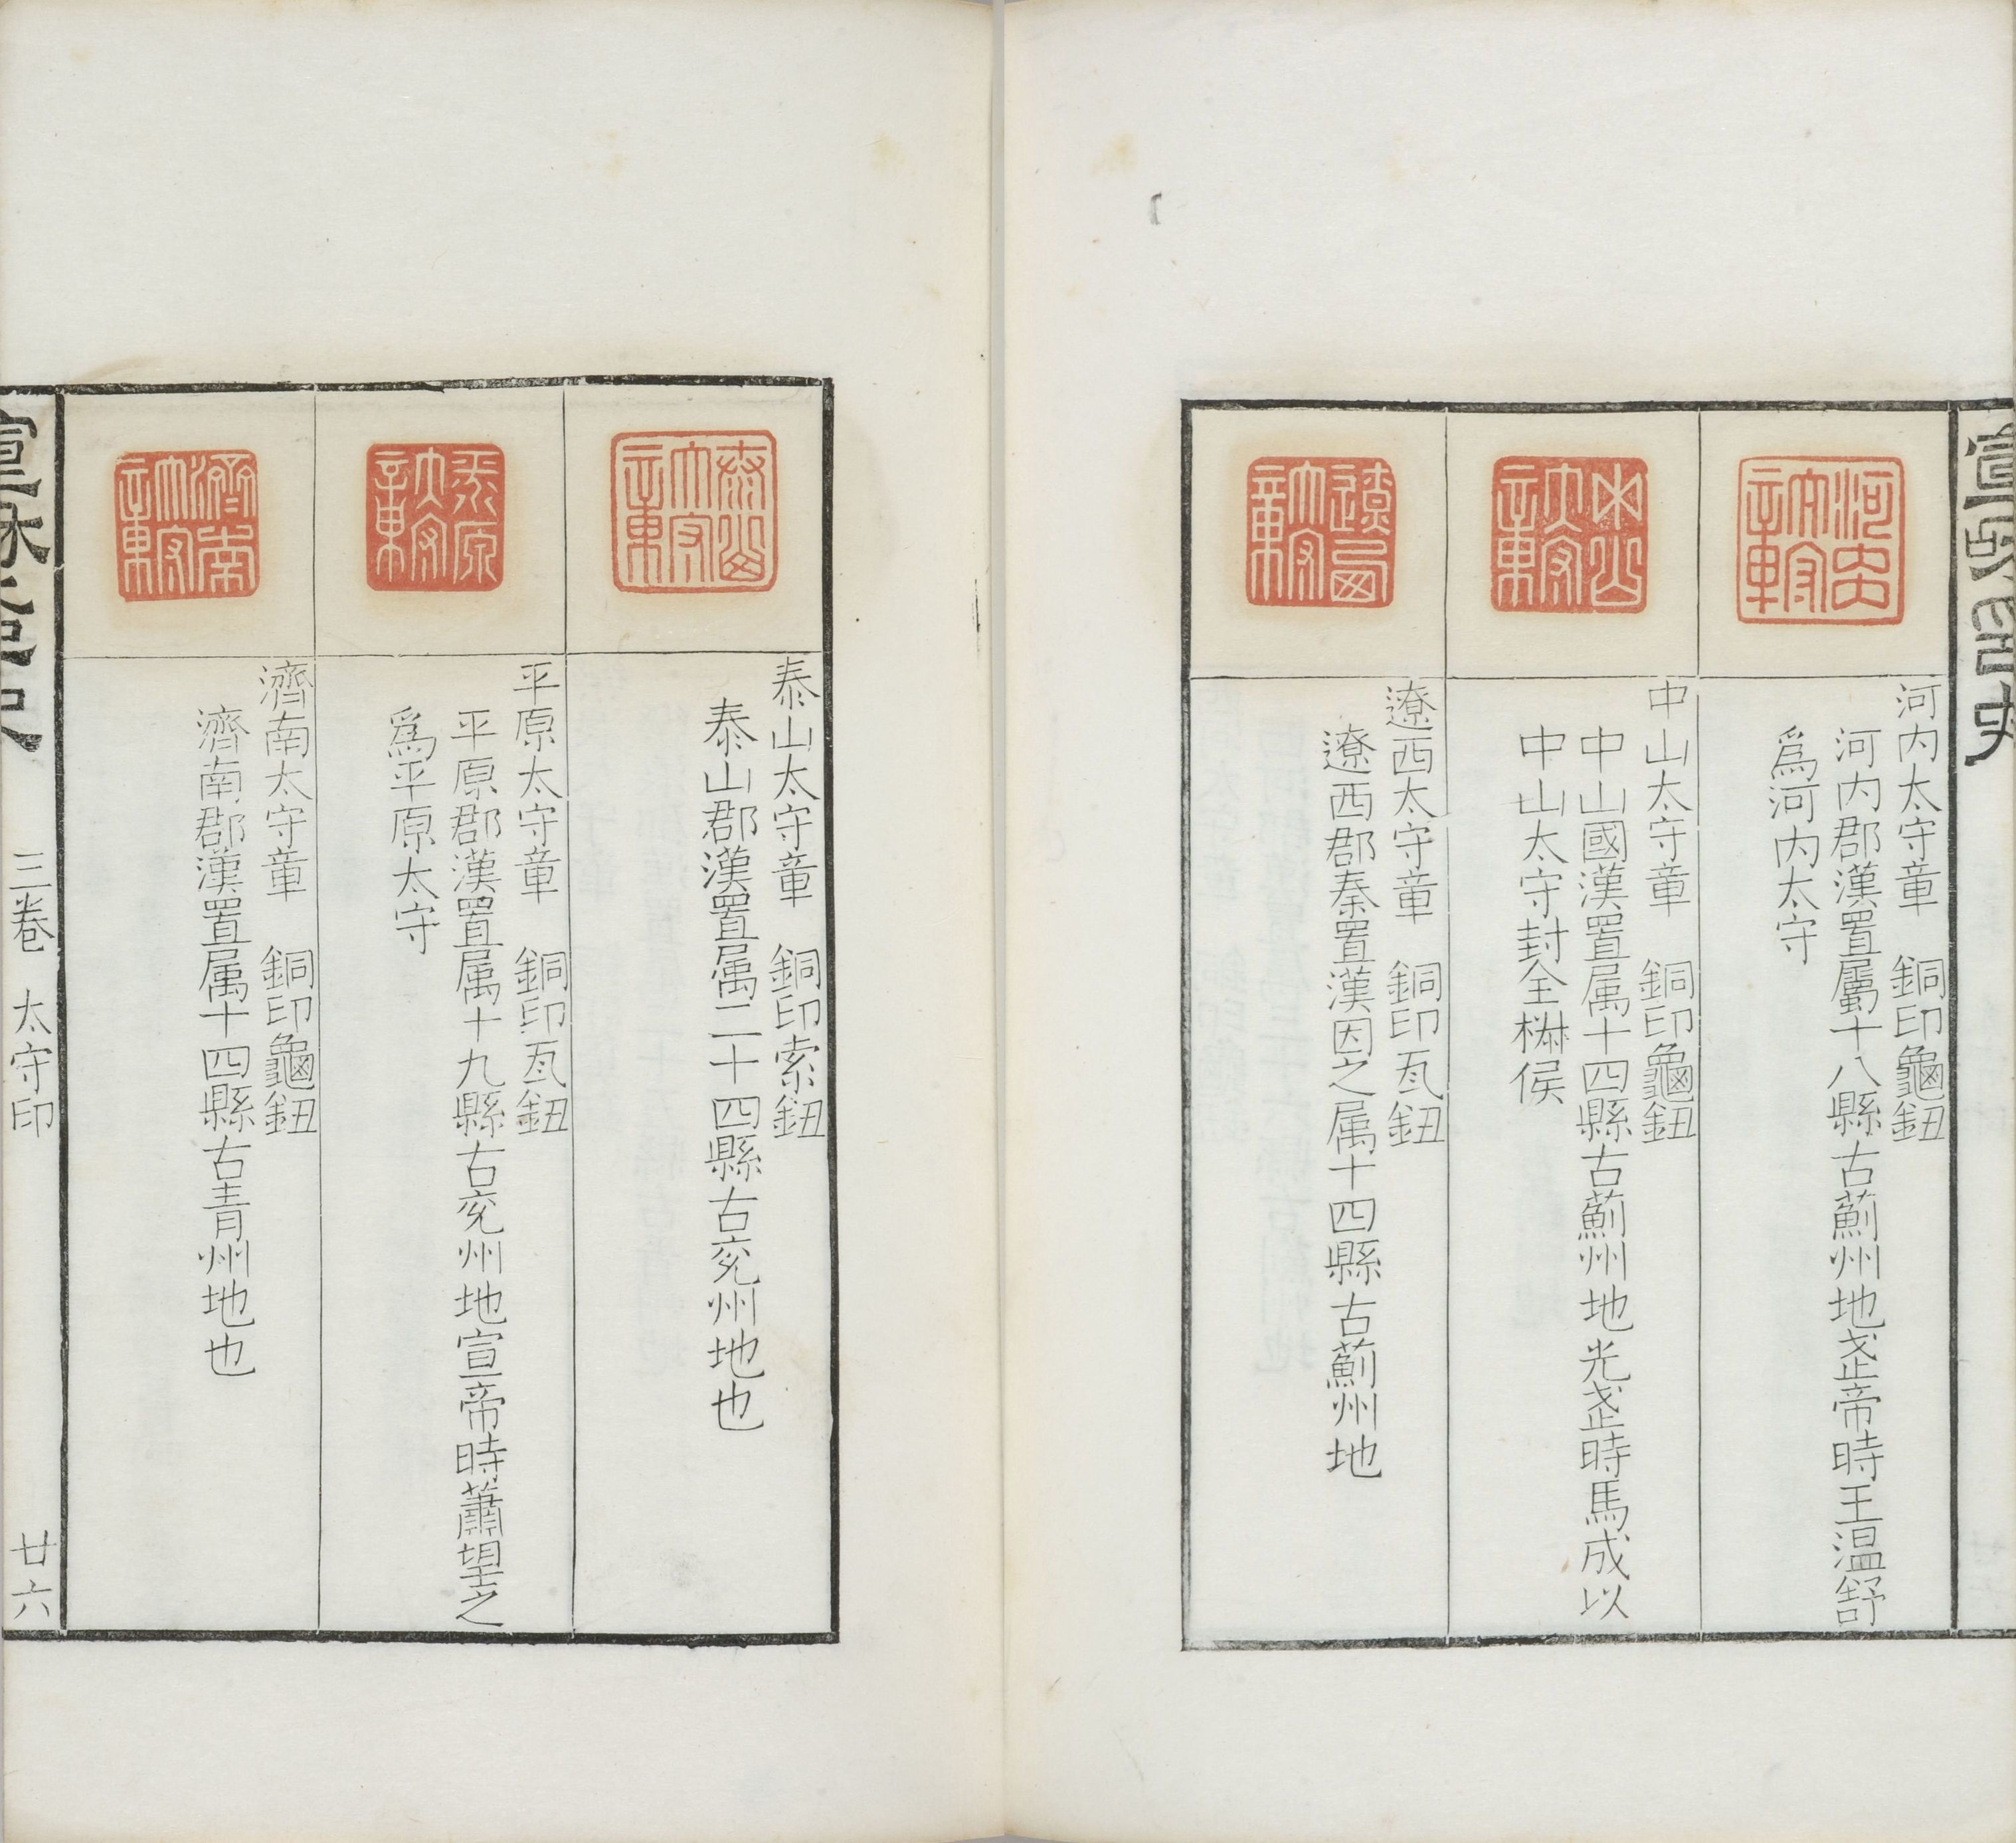 河内太守章　銅印龜鈕
河内郡漢置屬十八縣古薊州地武帝時王温舒
爲河内太守
中山太守章　銅印龜鈕
中山國漢置属十四縣古薊州地光武時馬成以
中山太守封全椒侯
遼西太守章　銅印瓦鈕
遼西郡秦置漢因之属十四縣古薊州地
泰山太守章　銅印索鈕
泰山郡漢置属二十四縣古兖州地也
平原太守章　銅印瓦鈕
平原郡漢置属十九縣古兖州地宣帝時蕭望之
爲平原太守
濟南太守章　銅印龜鈕
濟南郡漢置属十四縣古青州地也
三卷　太守印
廿六